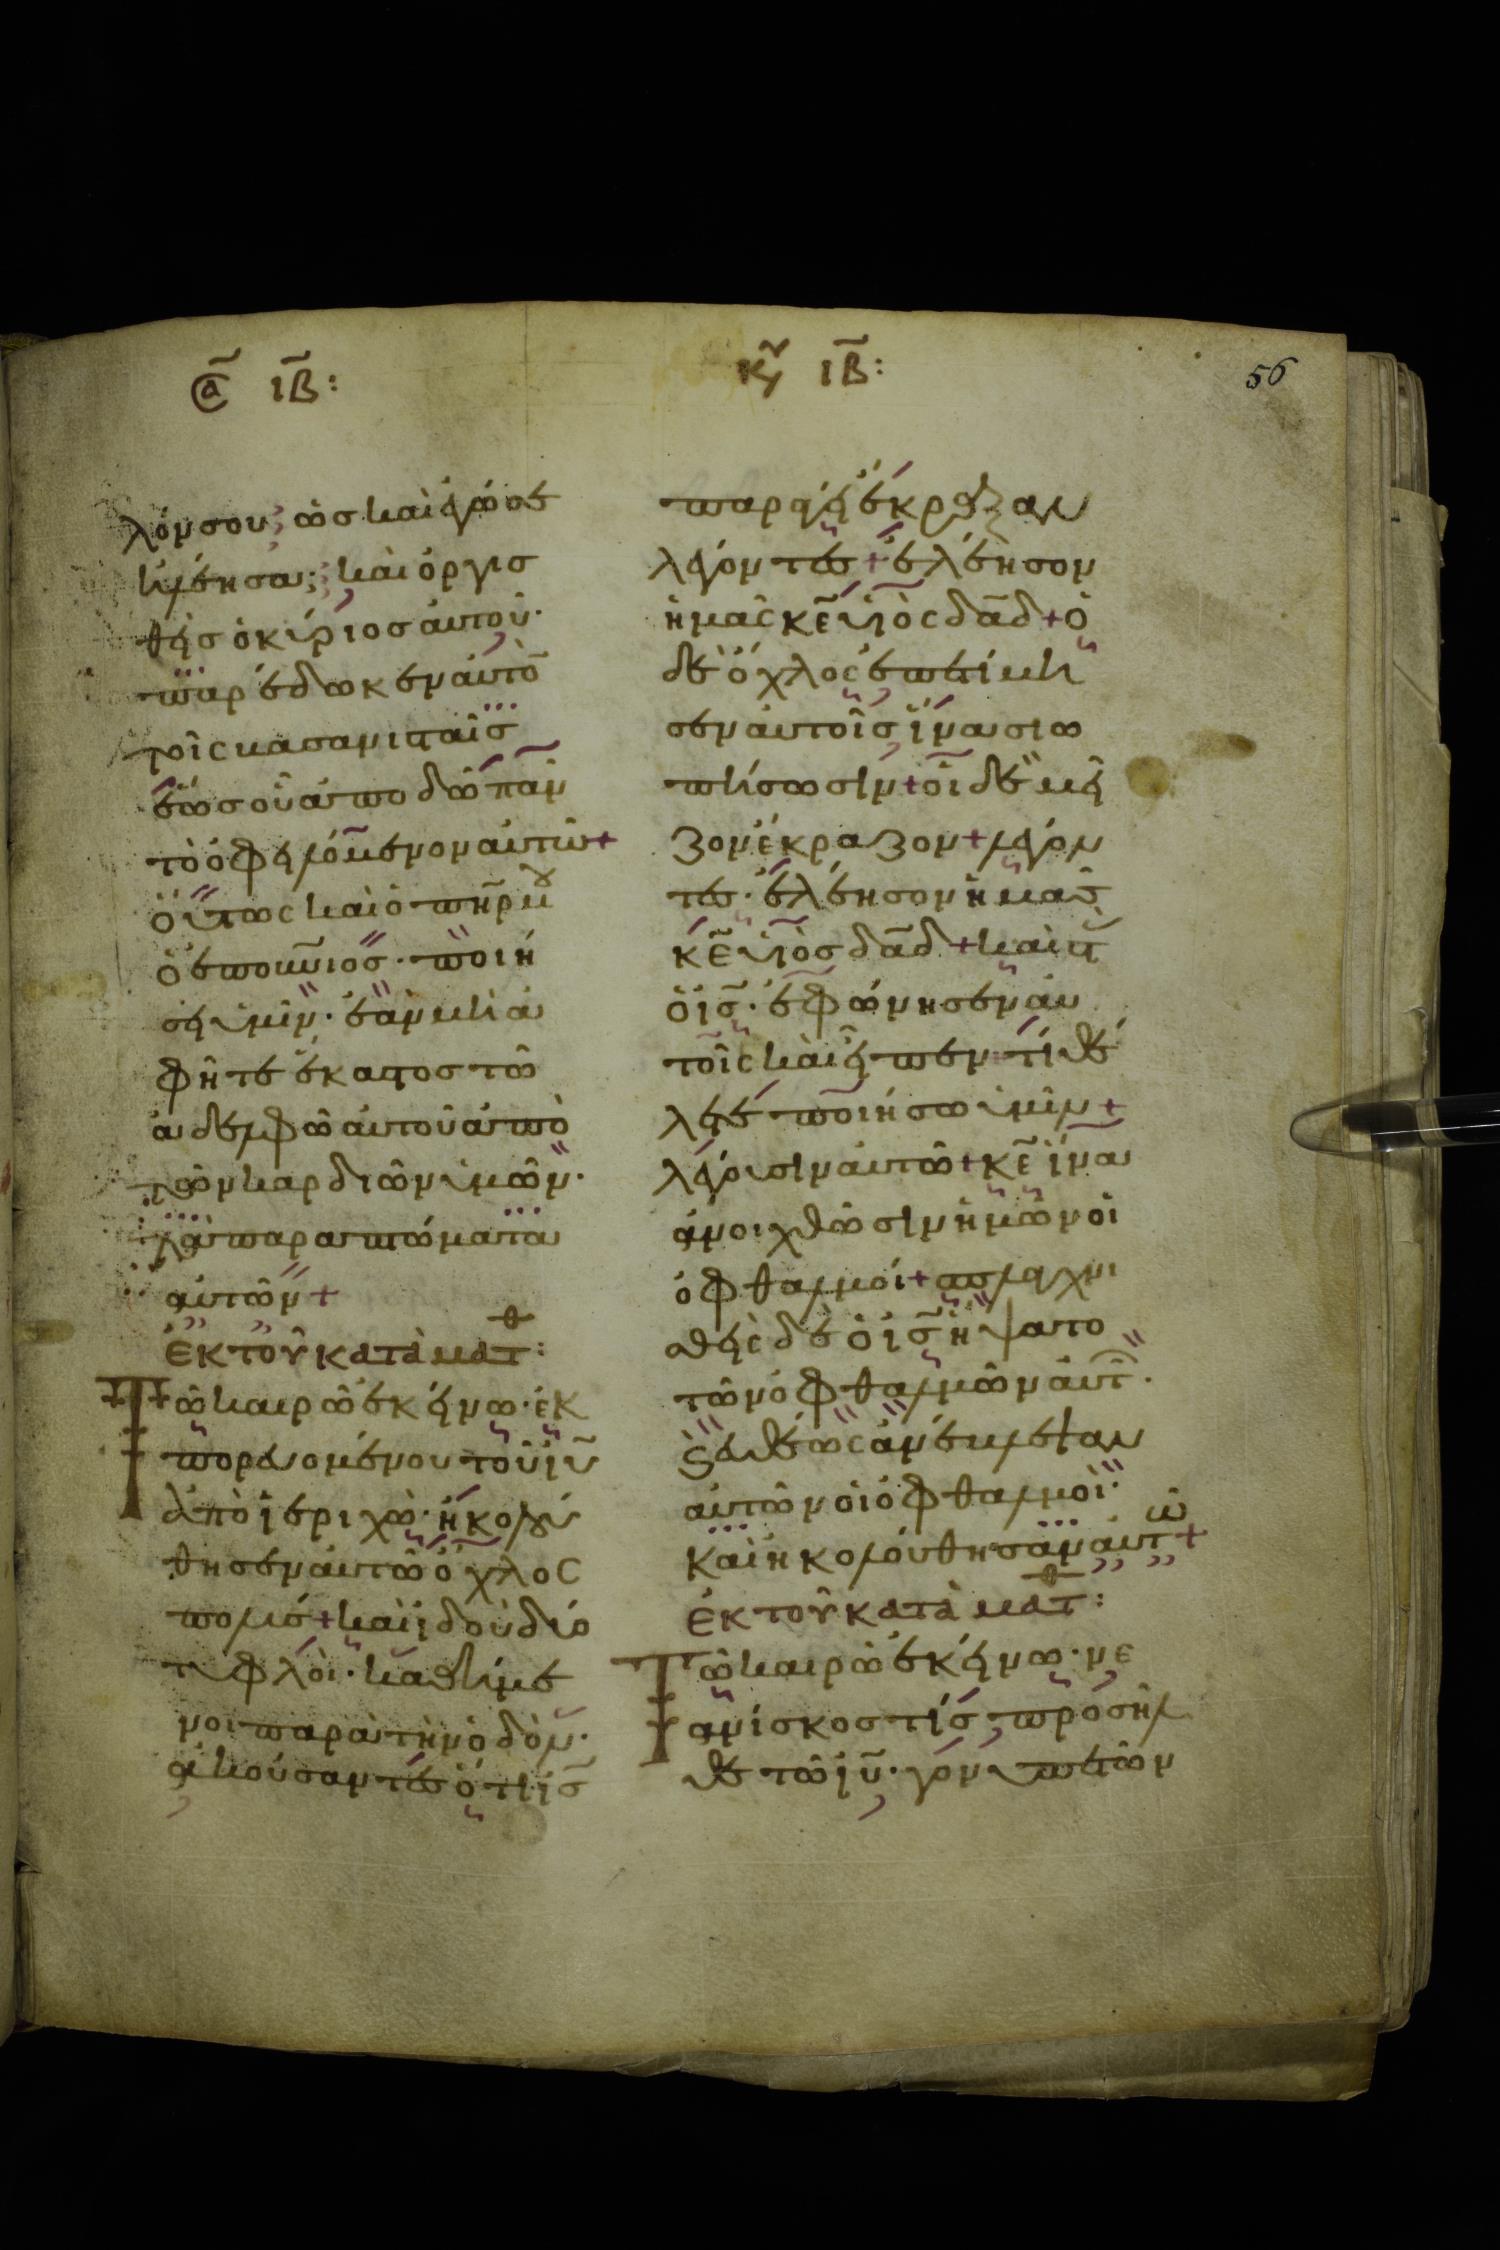 ϲα ιβ: κυ ιβ: 56
λόν σου; ὡσ καὶ ἐγώ σε
ἠλέησα; καὶ ὀργισ
θεὶσ ὁ κύριοσ αὐτοῦ·
παρέδωκεν αὐτὸ
τοῖς βασανισταῖσ
ἕωσ οὗ ἀποδῶ πᾶν
τὸ ὀφειλόμενον αὐτῶ+
Οὕτως καὶ ὁ πηρ μου
ὁ ἐπουνιοσ· ποιή
σει ὑμῖν· ἐὰν μὴ ἀ
φῆτε ἕκαστοσ τῶ
ἀδελφῶ αὐτοῦ ἀπὸ
τῶν καρδιῶν ὑμῶν·
τὰ παραπτώματα
αὐτῶν+
ἐκ τοῦ κατὰ ματθ:
Τῶ καιρῶ ἐκείνω· ἐκ
πορευομένου τοῦ ιυ
ἀπὸ ἰεριχὼ· ἠκολού
θησεν αὐτῶ ὄχλος
πολύσ+ καὶ ἰδοὺ δύο
τυφλοὶ· καθήμε
νοι παρὰ τὴν ὁδὸν·
ἀκούσαντεσ ὅτι ισ
παράγει ἔκραξαν
λέγοντεσ+ ἐλέησον
ἡμᾶς κε υἱὸς δαδ+ ὁ
δὲ ὄχλος ἐπετίμη
σεν αὐτοῖσ ἵνα σιω
πήσωσιν+ οἱ δὲ μεῖ
ζον ἔκραζον+ λέγον
τεσ· ἐλέησον ἡμᾶσ
κε υἱὸσ δαδ+ καὶ στὰσ
ὁ ισ· ἐφώνησεν αὐ
τοῖς καὶ εἶπεν τί θέ
λετε ποιήσω ὑμῖν+
λέγουσιν αὐτῶ+ κε ἵνα
ἀνοιχθῶσιν ἡμῶν οἱ
ὀφθαλμοί+ σπλαγχνι
σθεὶς δὲ ὁ ισ ἥψατο
τῶν ὀφθαλμῶν αὐτῶν·
Εὐθέως ἀνέβλεψαν
αὐτῶν οἱ ὀφθαλμοὶ·
Καὶ ἠκολούθησαν αὐτῶ+
ἐκ τοῦ κατὰ ματθ:
Τῶ καιρῶ ἐκείνω· νε
ανίσκοσ τίσ προσῆλ
θε τῶ ιυ· γονυπετῶν